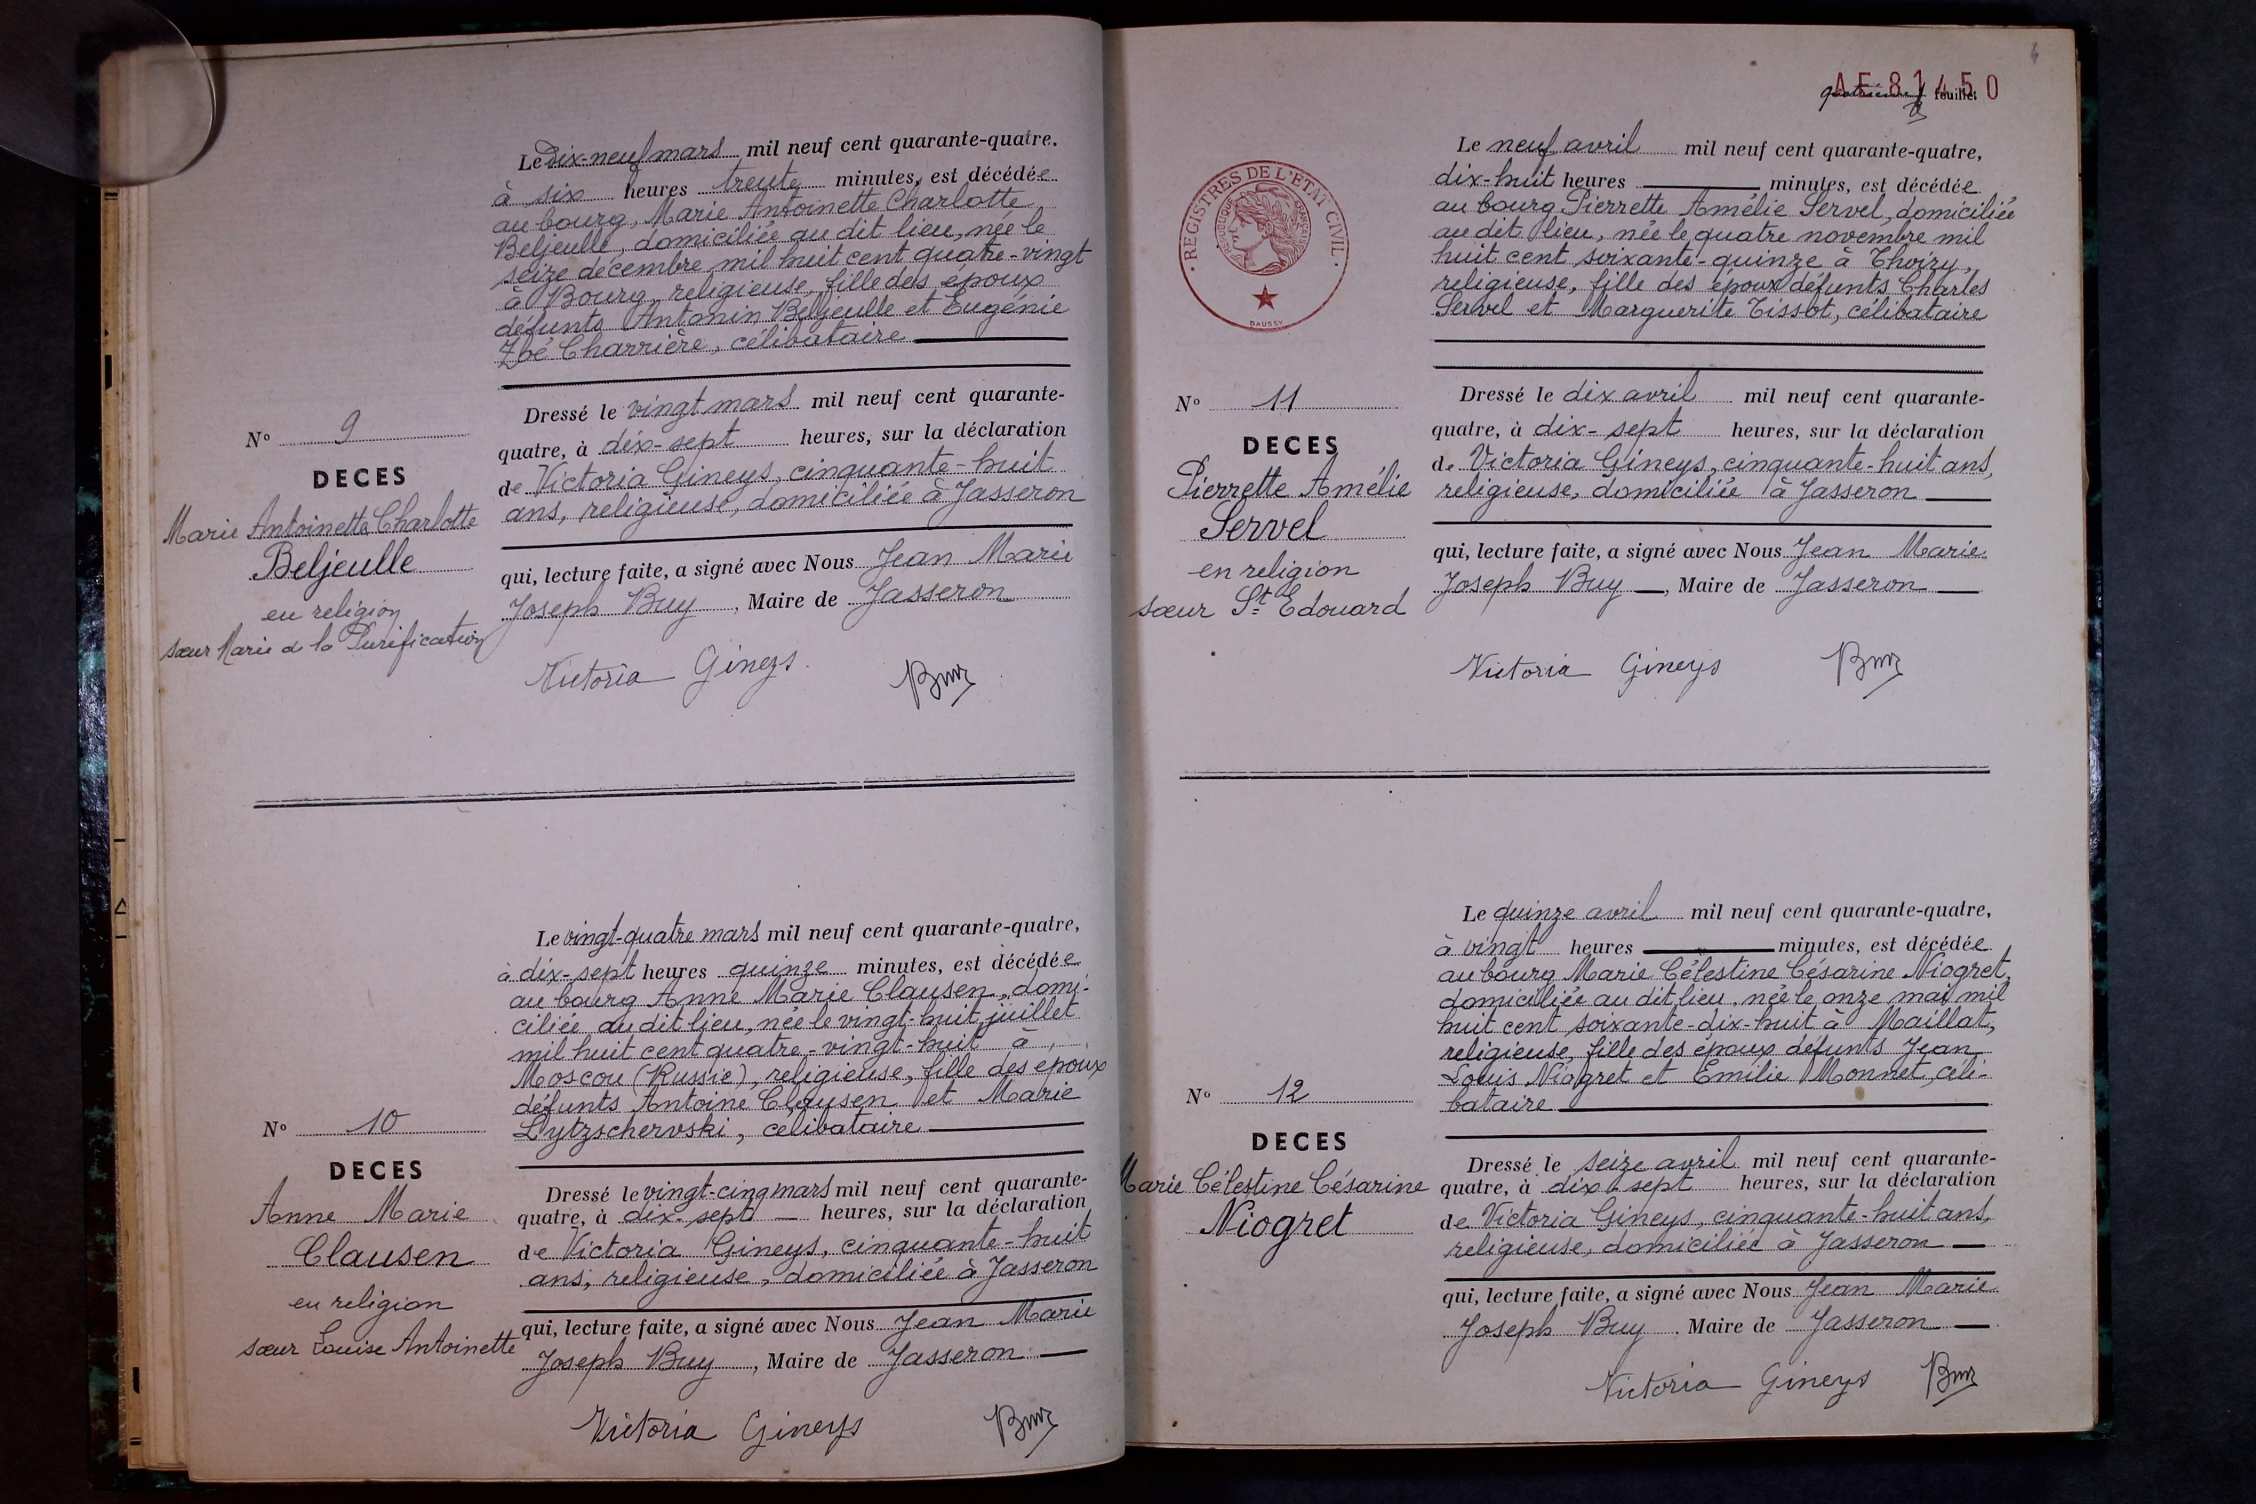 Le Dix-neuf mars mil neuf cent quarante-quatre.
à six heures trente minutes, est décédée
au bourg, Marie Antoinette Charlotte
Beljeulle, domiciliée au dit lieu, née le
seize décembre mil huit cent quatre-vingt
à Bourg, religieuse, fille des époux
défunts Antonin Beljeulle et Eugénie
Zoé Charrière, célibataire
Dressé le vingt mars mil neuf cent quarante-
quatre, à dix-sept heures, sur la déclaration
de Victoria Gineys, cinquante-huit
ans, religieuse, domiciliée à Jasseron
qui, lecture faite, a signé avec Nous Jean Marie
Joseph Buy, Maire de Jasseron
Victoria Gineys Buy
No 9
DECES
Marie Antoinette Charlotte
Beljeulle
en religion
sœur Marie de la Purification
Le vingt-quatre mars mil neuf cent quarante-quatre,
à dix-sept heures quinze minutes, est décédée
au bourg Anne Marie Clausen, domi-
ciliée au dit lieu, née le vingt-huit juillet
mil huit cent quatre-vingt-huit à
Moscou (Russie), religieuse, fille des époux
défunts Antoine Clausen et Marie
Lytzschervski, célibataire
Dressé le vingt-cinq mars mil neuf cent quarante-
quatre, à dix-sept heures, sur la déclaration
de Victoria Gineys, cinquante-huit
ans, religieuse, domiciliée à Jasseron
qui, lecture faite, a signé avec Nous Jean Marie
Joseph Buy, Maire de Jasseron
Victoria Gineys Buy
No 10
DECES
Anne Marie
Clausen
en religion
sœur Louise Antoinette
AE 81450
quatrième feuillet
REGISTRES DE L'ETAT CIVIL
REPUBLIQUE FRANÇAISE
DAUSSY
Le neuf avril mil neuf cent quarante-quatre,
dix-huit heures minutes, est décédée
au bourg Pierrette Amélie Servel, domiciliée
au dit lieu, née le quatre novembre mil
huit cent soixante-quinze à Thoiry,
religieuse, fille des époux défunts Charles
Servel et Marguerite Tissot, célibataire
Dressé le dix avril mil neuf cent quarante-
quatre, à dix-sept heures, sur la déclaration
de Victoria Gineys, cinquante-huit ans,
religieuse, domiciliée à Jasseron
qui, lecture faite, a signé avec Nous Jean Marie
Joseph Buy, Maire de Jasseron
Victoria Gineys Buy
No 11
DECES
Pierrette Amélie
Servel
en religion
sœur St Edouard
Le quinze avril mil neuf cent quarante-quatre,
à vingt heures minutes, est décédée
au bourg Marie Célestine Césarine Niogret,
domiciliée au dit lieu, née le onze mai mil
huit cent soixante-dix-huit à Maillat,
religieuse, fille des époux défunts Jean
Louis Niogret et Emilie Monnet, céli-
bataire
Dressé le seize avril mil neuf cent quarante-
quatre, à dix-sept heures, sur la déclaration
de Victoria Gineys, cinquante-huit ans,
religieuse, domiciliée à Jasseron
qui, lecture faite, a signé avec Nous Jean Marie
Joseph Buy. Maire de Jasseron
Victoria Gineys Buy
No 12
DECES
Marie Célestine Césarine
Niogret